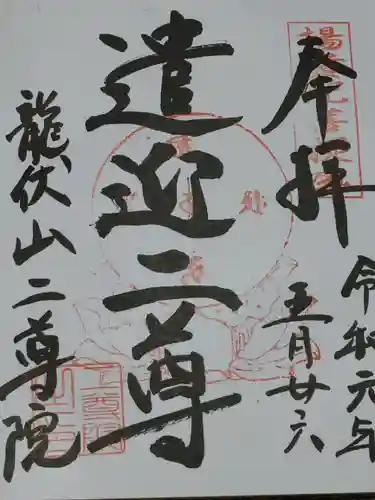 奉拝
令和元年
五月廿六
遣迎二尊
龍伏山二尊院